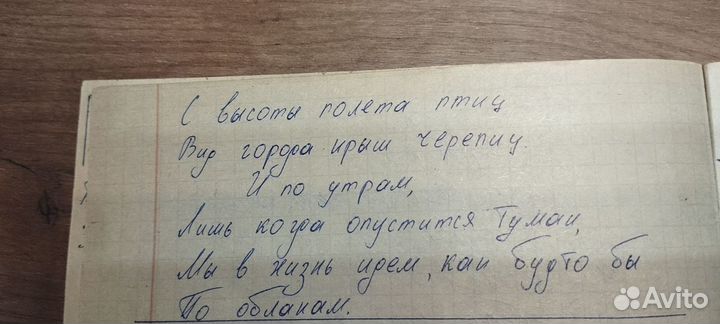 С высоты полета птиц
Вид города. крыш черепиц.
И по утрам,
Лишь когда опустится Туман,
Мы в жизнь идем, как будто бы
По облакам.
Avito